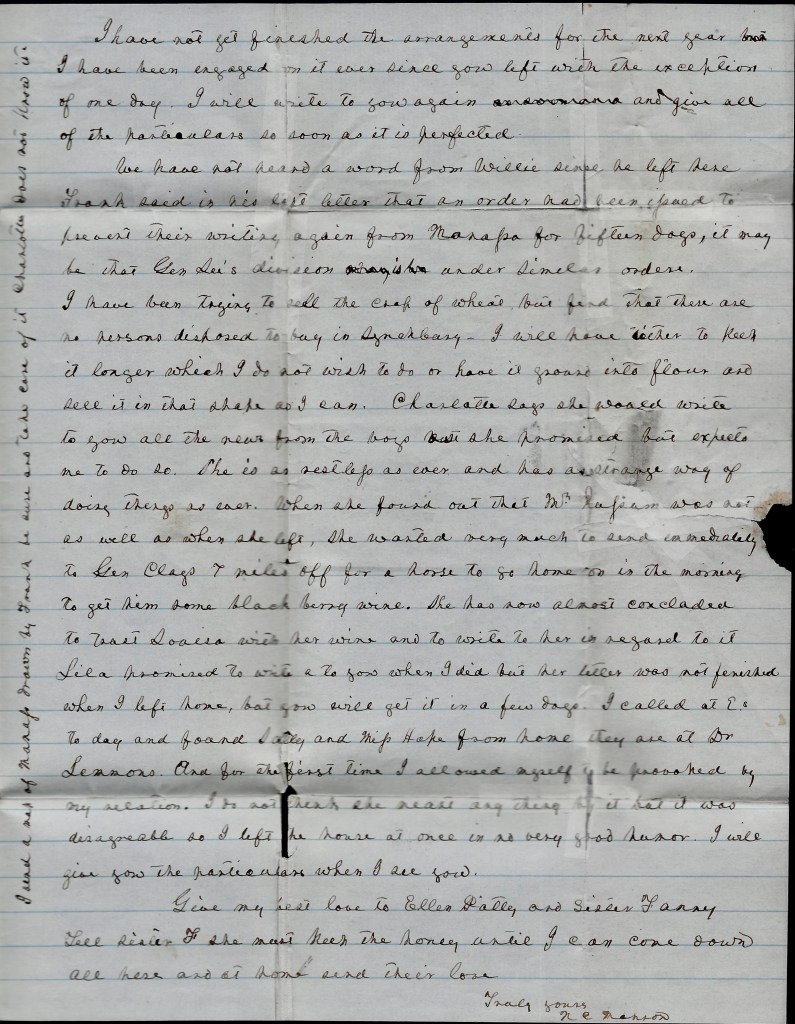 I have not yet fineshed the arrangements for the next year
I have been engaged on it ever since you left with the exception
of one day. I will write to you again and give all
of the particulars so soon as it is perfected
We have not heard a word from Willie since he left here
Frank said in his last letter that an order had been issued to
prevent their writing again from Manassa for fifteen days, it may
be that Gen Lee's division under similar orders.
I have been trying to sell the crop of wheat but find that there are
no persons disposed to buy in Lynchburg - I will have either to keep
it longer which I do not wish to do or have it ground into flour and
sell it in that shape as I can. Charlotte says she would write
to you all the news from the boys she promised but expects
me to do so. She is as restless as ever and has as strange way of
doing things as ever. When she found out that Mr was not
as well as when she left, she wanted very much to send immediately
to Gen Clays 7 miles off for a horse to go home on in the morning
to get him some black berry wine. She has now almost concluded
to trust Louisa with her wine and to write to her in regard to it
Lila promised to write to you when I did but her letter was not fenished
when I left home, but you will get it in a few days. I called at Es
to day and found Sally and Miss Hope from home they are at Dr
Lemmons. And for the first time I allowed myself to be provoked by
my relation. I do not think she meant any thing by it but it was
disagreable so I left the house at once in no very good humor. I will
give you the particulars when I see you.
Give my best love to Ellen Patty and Sister Fanny
Tell sister F she must keep the honey until I can come down
all here and at home send their love
Truly yours
N C Manson
I send a map of Manass drawn by Frank be sure and take care of it Charlotte does not know it.